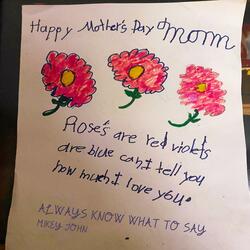 Happy Mother's Day
Mom
Rose's are red violets
are blue can,t tell you
how much I love you.
ALWAYS KNOW WHAT TO SAY
MIKEY JOHN